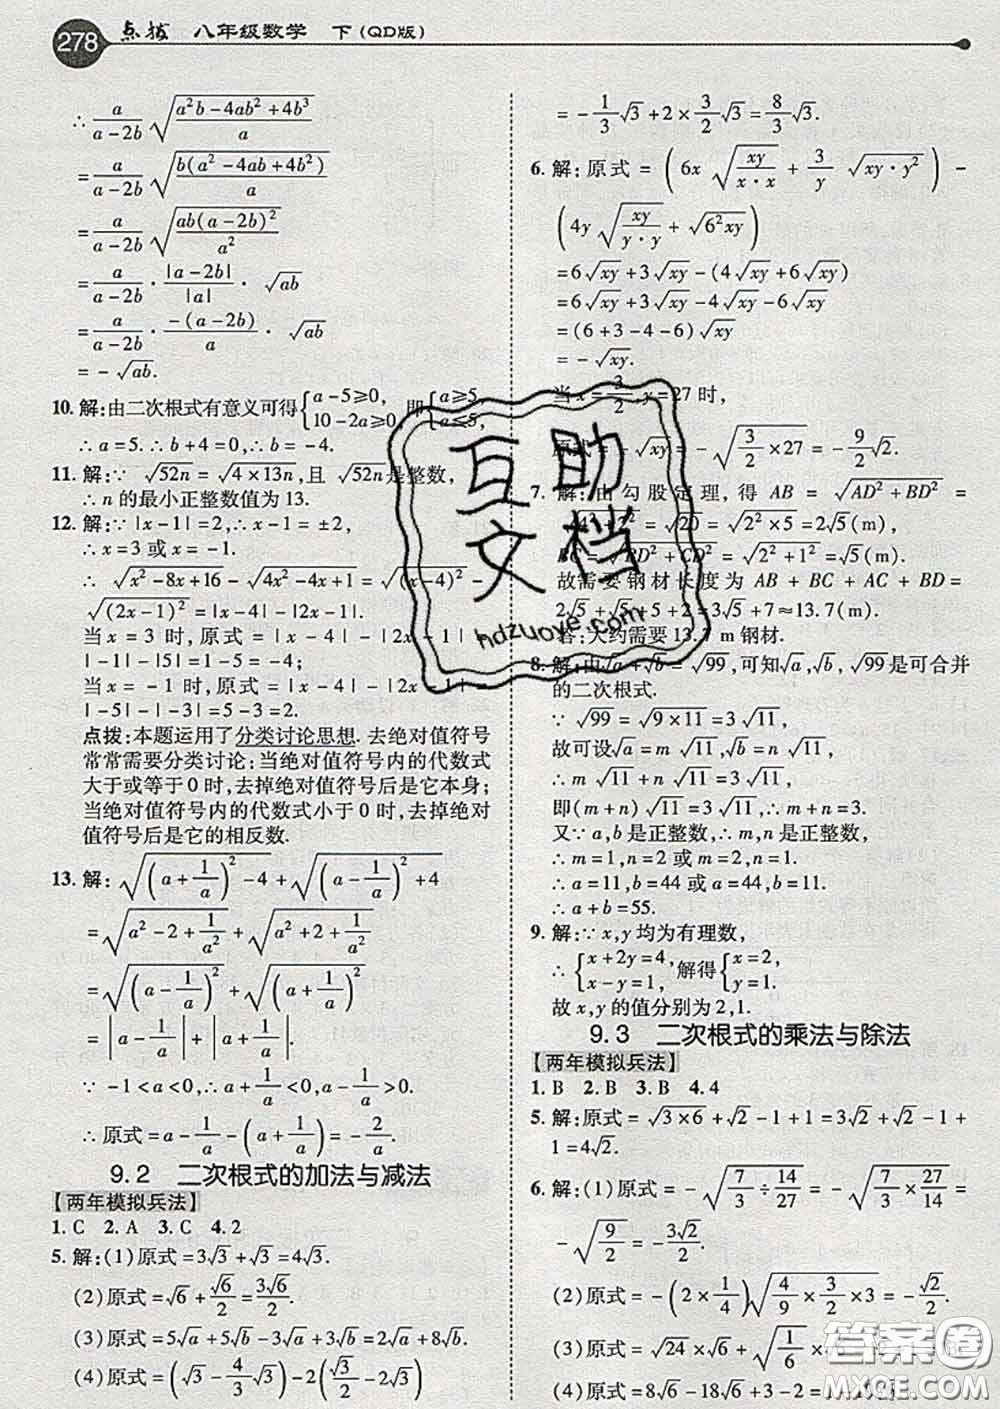 278 点拨 八年级数学 下(QD版)
∴ a/(a-2b) √((a²b-4ab²+4b³)/a)
= a/(a-2b) √(b(a²-4ab+4b²)/a)
= a/(a-2b) √(ab(a-2b)²/a²)
= a/(a-2b) · |a-2b|/|a| · √ab
= a/(a-2b) · -(a-2b)/a · √ab
= -√ab.
10. 解:由二次根式有意义可得{a-5≥0, 10-2a≥0, 即{a≥5, a≤5,
∴ a=5. ∴ b+4=0, ∴ b=-4.
11. 解:∵ √52n = √4×13n, 且 √52n 是整数,
∴ n 的最小正整数值为 13.
12. 解:∵ |x-1|=2, ∴ x-1=±2,
∴ x=3 或 x=-1.
∴ √(x²-8x+16) - √(4x²-4x+1) = √(x-4)² -
√(2x-1)² = |x-4| - |2x-1|.
当 x=3 时, 原式 = |x-4| - |2x-1| =
|-1|-|5|=1-5=-4;
当 x=-1 时, 原式 = |x-4| - |2x-1| =
|-5|-|-3|=5-3=2.
点拨:本题运用了分类讨论思想. 去绝对值符号
常常需要分类讨论; 当绝对值符号内的代数式
大于或等于 0 时, 去掉绝对值符号后是它本身;
当绝对值符号内的代数式小于 0 时, 去掉绝对
值符号后是它的相反数.
13. 解: √((a+1/a)²-4) + √((a-1/a)²+4)
= √(a²-2+1/a²) + √(a²+2+1/a²)
= √((a-1/a)²) + √((a+1/a)²)
= |a-1/a| + |a+1/a|.
∵ -1<a<0, ∴ a+1/a<0, a-1/a>0.
∴ 原式 = a-1/a-(a+1/a) = -2/a.
9.2 二次根式的加法与减法
【两年模拟兵法】
1. C 2. A 3. C 4. 2
5. 解:(1)原式 = 3√3+√3 = 4√3.
(2)原式 = √6+√6/2 = 3√6/2.
(3)原式 = 5√a+5√b-3√a+3√b = 2√a+8√b.
(4)原式 = (√3-4/3√3)-(√3/2-2×√3)
= -1/3√3+2×3/2√3 = 8/3√3.
6. 解:原式 = (6x√(xy/(x·x)) + 3/y √(xy·y²)) -
(4y√(xy/(y·y)) + √(6²xy))
= 6√xy+3√xy-(4√xy+6√xy)
= 6√xy+3√xy-4√xy-6√xy
= (6+3-4-6)√xy
= -√xy.
当 x=3/2, y=27 时,
原式 = -√xy = -√(3/2×27) = -9/2√2.
7. 解:由勾股定理, 得 AB = √(AD²+BD²) =
√(4²+2²) = √20 = √(2²×5) = 2√5(m),
BC = √(BD²+CD²) = √(2²+1²) = √5(m).
故需要钢材长度为 AB + BC + AC + BD =
2√5+√5+5+2=3√5+7≈13.7(m).
答:大约需要 13.7 m 钢材.
8. 解:由√a+√b=√99, 可知√a, √b, √99是可合并
的二次根式.
∵ √99 = √(9×11) = 3√11,
故可设√a=m√11, √b=n√11,
∴ m√11+n√11=3√11,
即(m+n)√11=3√11, ∴ m+n=3.
又∵ a, b 是正整数, ∴ m, n 是正整数,
∴ m=1, n=2 或 m=2, n=1.
∴ a=11, b=44 或 a=44, b=11.
∴ a+b=55.
9. 解:∵ x, y 均为有理数,
∴ {x+2y=4, x-y=1, 解得{x=2, y=1.
故 x, y 的值分别为 2, 1.
9.3 二次根式的乘法与除法
【两年模拟兵法】
1. B 2. B 3. B 4. 4
5. 解:原式 = √(3×6)+√2-1+1 = 3√2+√2-1
+1 = 4√2.
6. 解:(1)原式 = -√(7/3÷14/27) = -√(7/3×27/14) =
-√(9/2) = -3√2/2.
(2)原式 = -(2×1/4)√(4/9×3/2×3) = -√2/2.
(3)原式 = √24×√6+√(1/6)×√6
(4)原式 = 8√6-18√6+
互助
文档
hdzuoye.com
答案圈
MXQE.COM